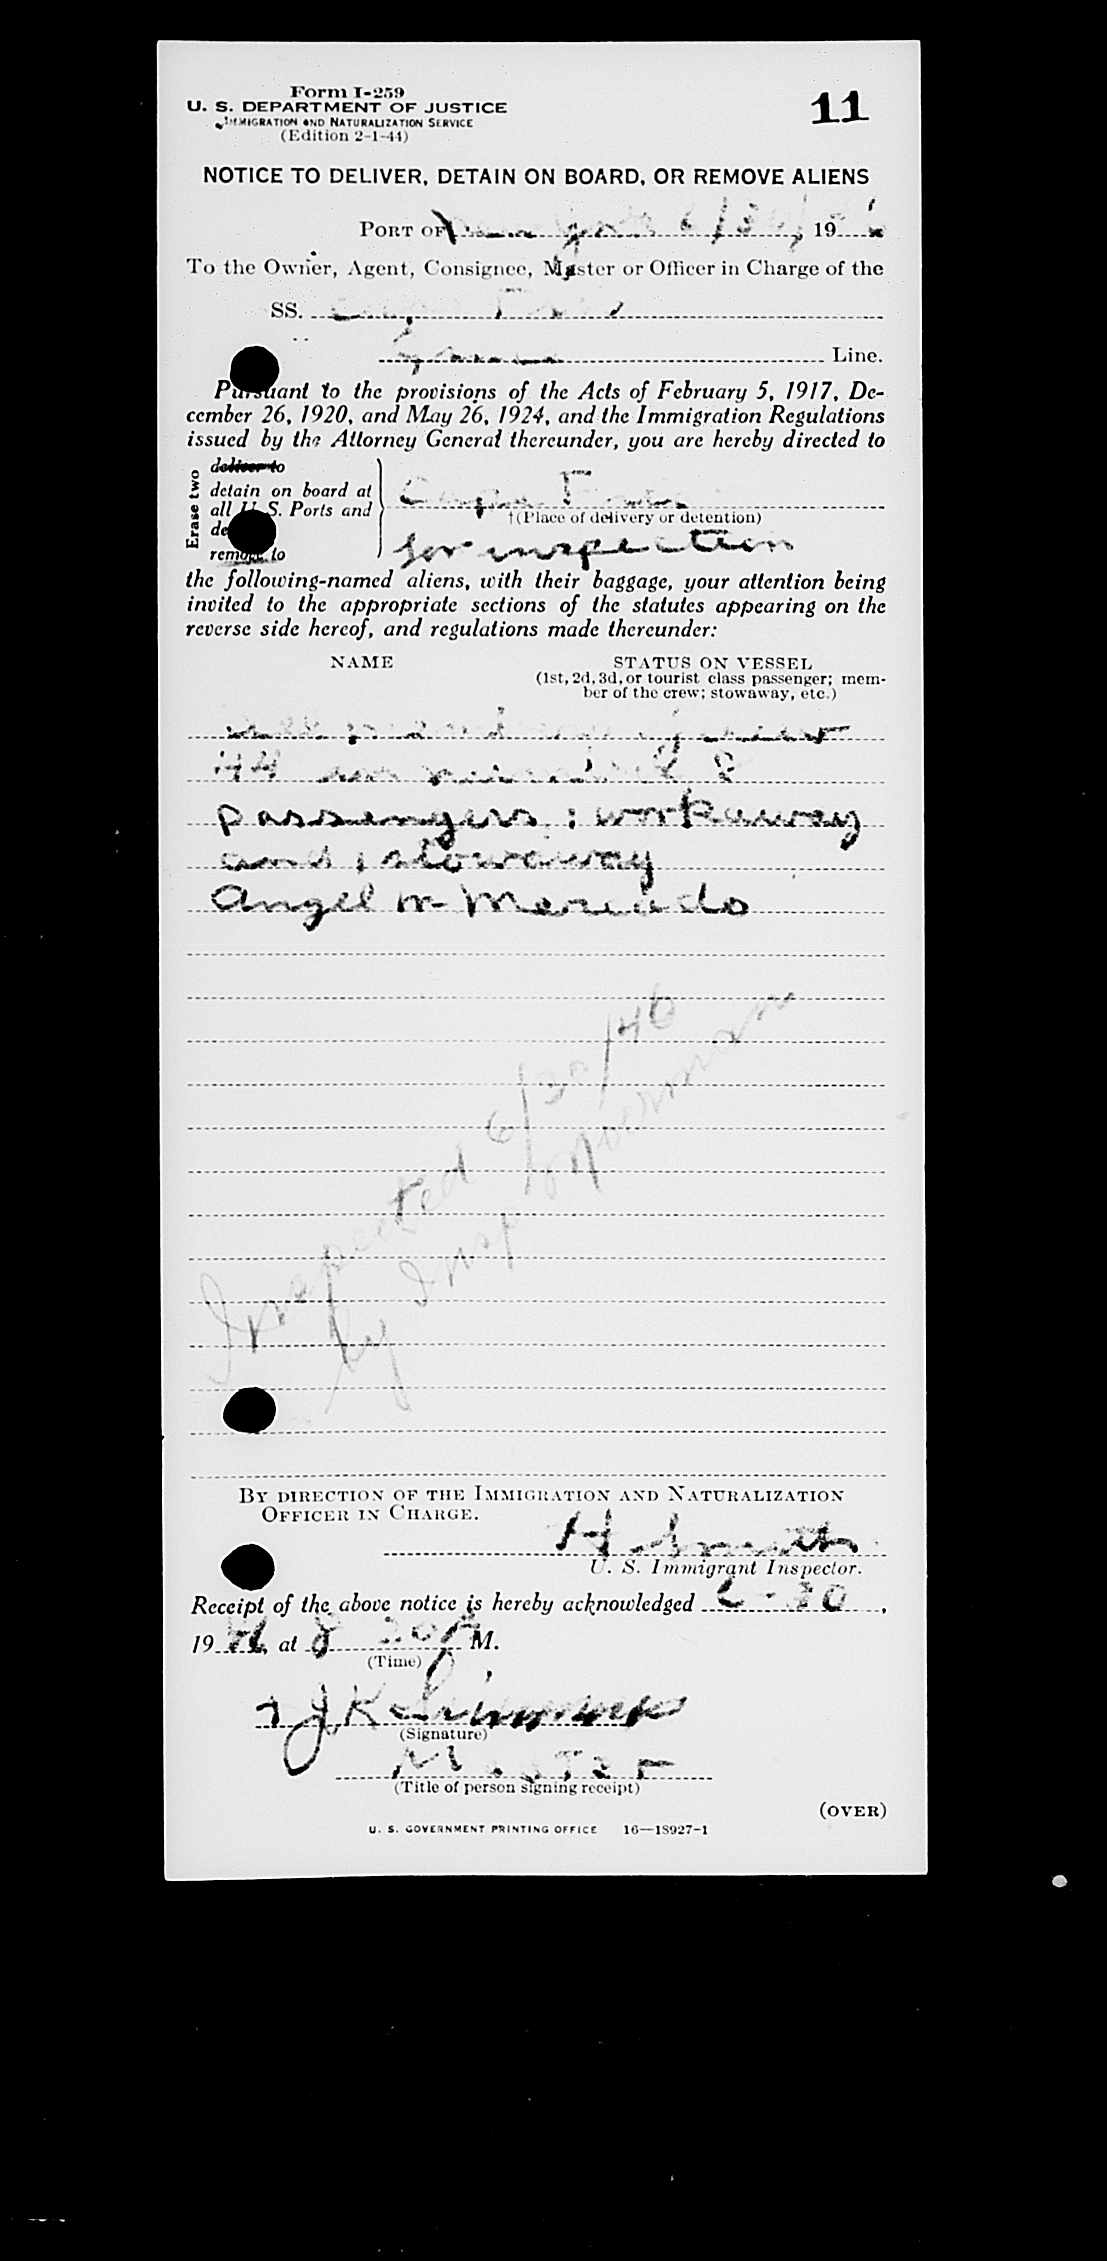 Form I-259
U. S. DEPARTMENT OF JUSTICE
IMMIGRATION AND NATURALIZATION SERVICE
(Edition 2-1-44)
11
NOTICE TO DELIVER, DETAIN ON BOARD, OR REMOVE ALIENS
PORT OF New York 6/30, 1946
To the Owner, Agent, Consignee, Master or Officer in Charge of the
SS.
Line.
Pursuant to the provisions of the Acts of February 5, 1917, De-
cember 26, 1920, and May 26, 1924, and the Immigration Regulations
issued by the Attorney General thereunder, you are hereby directed to
Erase two
deliver to
detain on board at
all U. S. Ports and
remove to
†(Place of delivery or detention)
for inspection
the following-named aliens, with their baggage, your attention being
invited to the appropriate sections of the statutes appearing on the
reverse side hereof, and regulations made thereunder:
NAME STATUS ON VESSEL
(1st, 2d, 3d, or tourist class passenger; mem-
ber of the crew; stowaway, etc.)
crew
44
passengers 1 workaway
and 1 stowaway
Angel M Mercado
Inspected 6/30/46
by Insp
BY DIRECTION OF THE IMMIGRATION AND NATURALIZATION
OFFICER IN CHARGE.
H. Smith
U. S. Immigrant Inspector.
Receipt of the above notice is hereby acknowledged 6-30,
1946, at 8 20 A M.
(Time)
(Signature)
Master
(Title of person signing receipt)
(OVER)
U. S. GOVERNMENT PRINTING OFFICE 16—18927-1